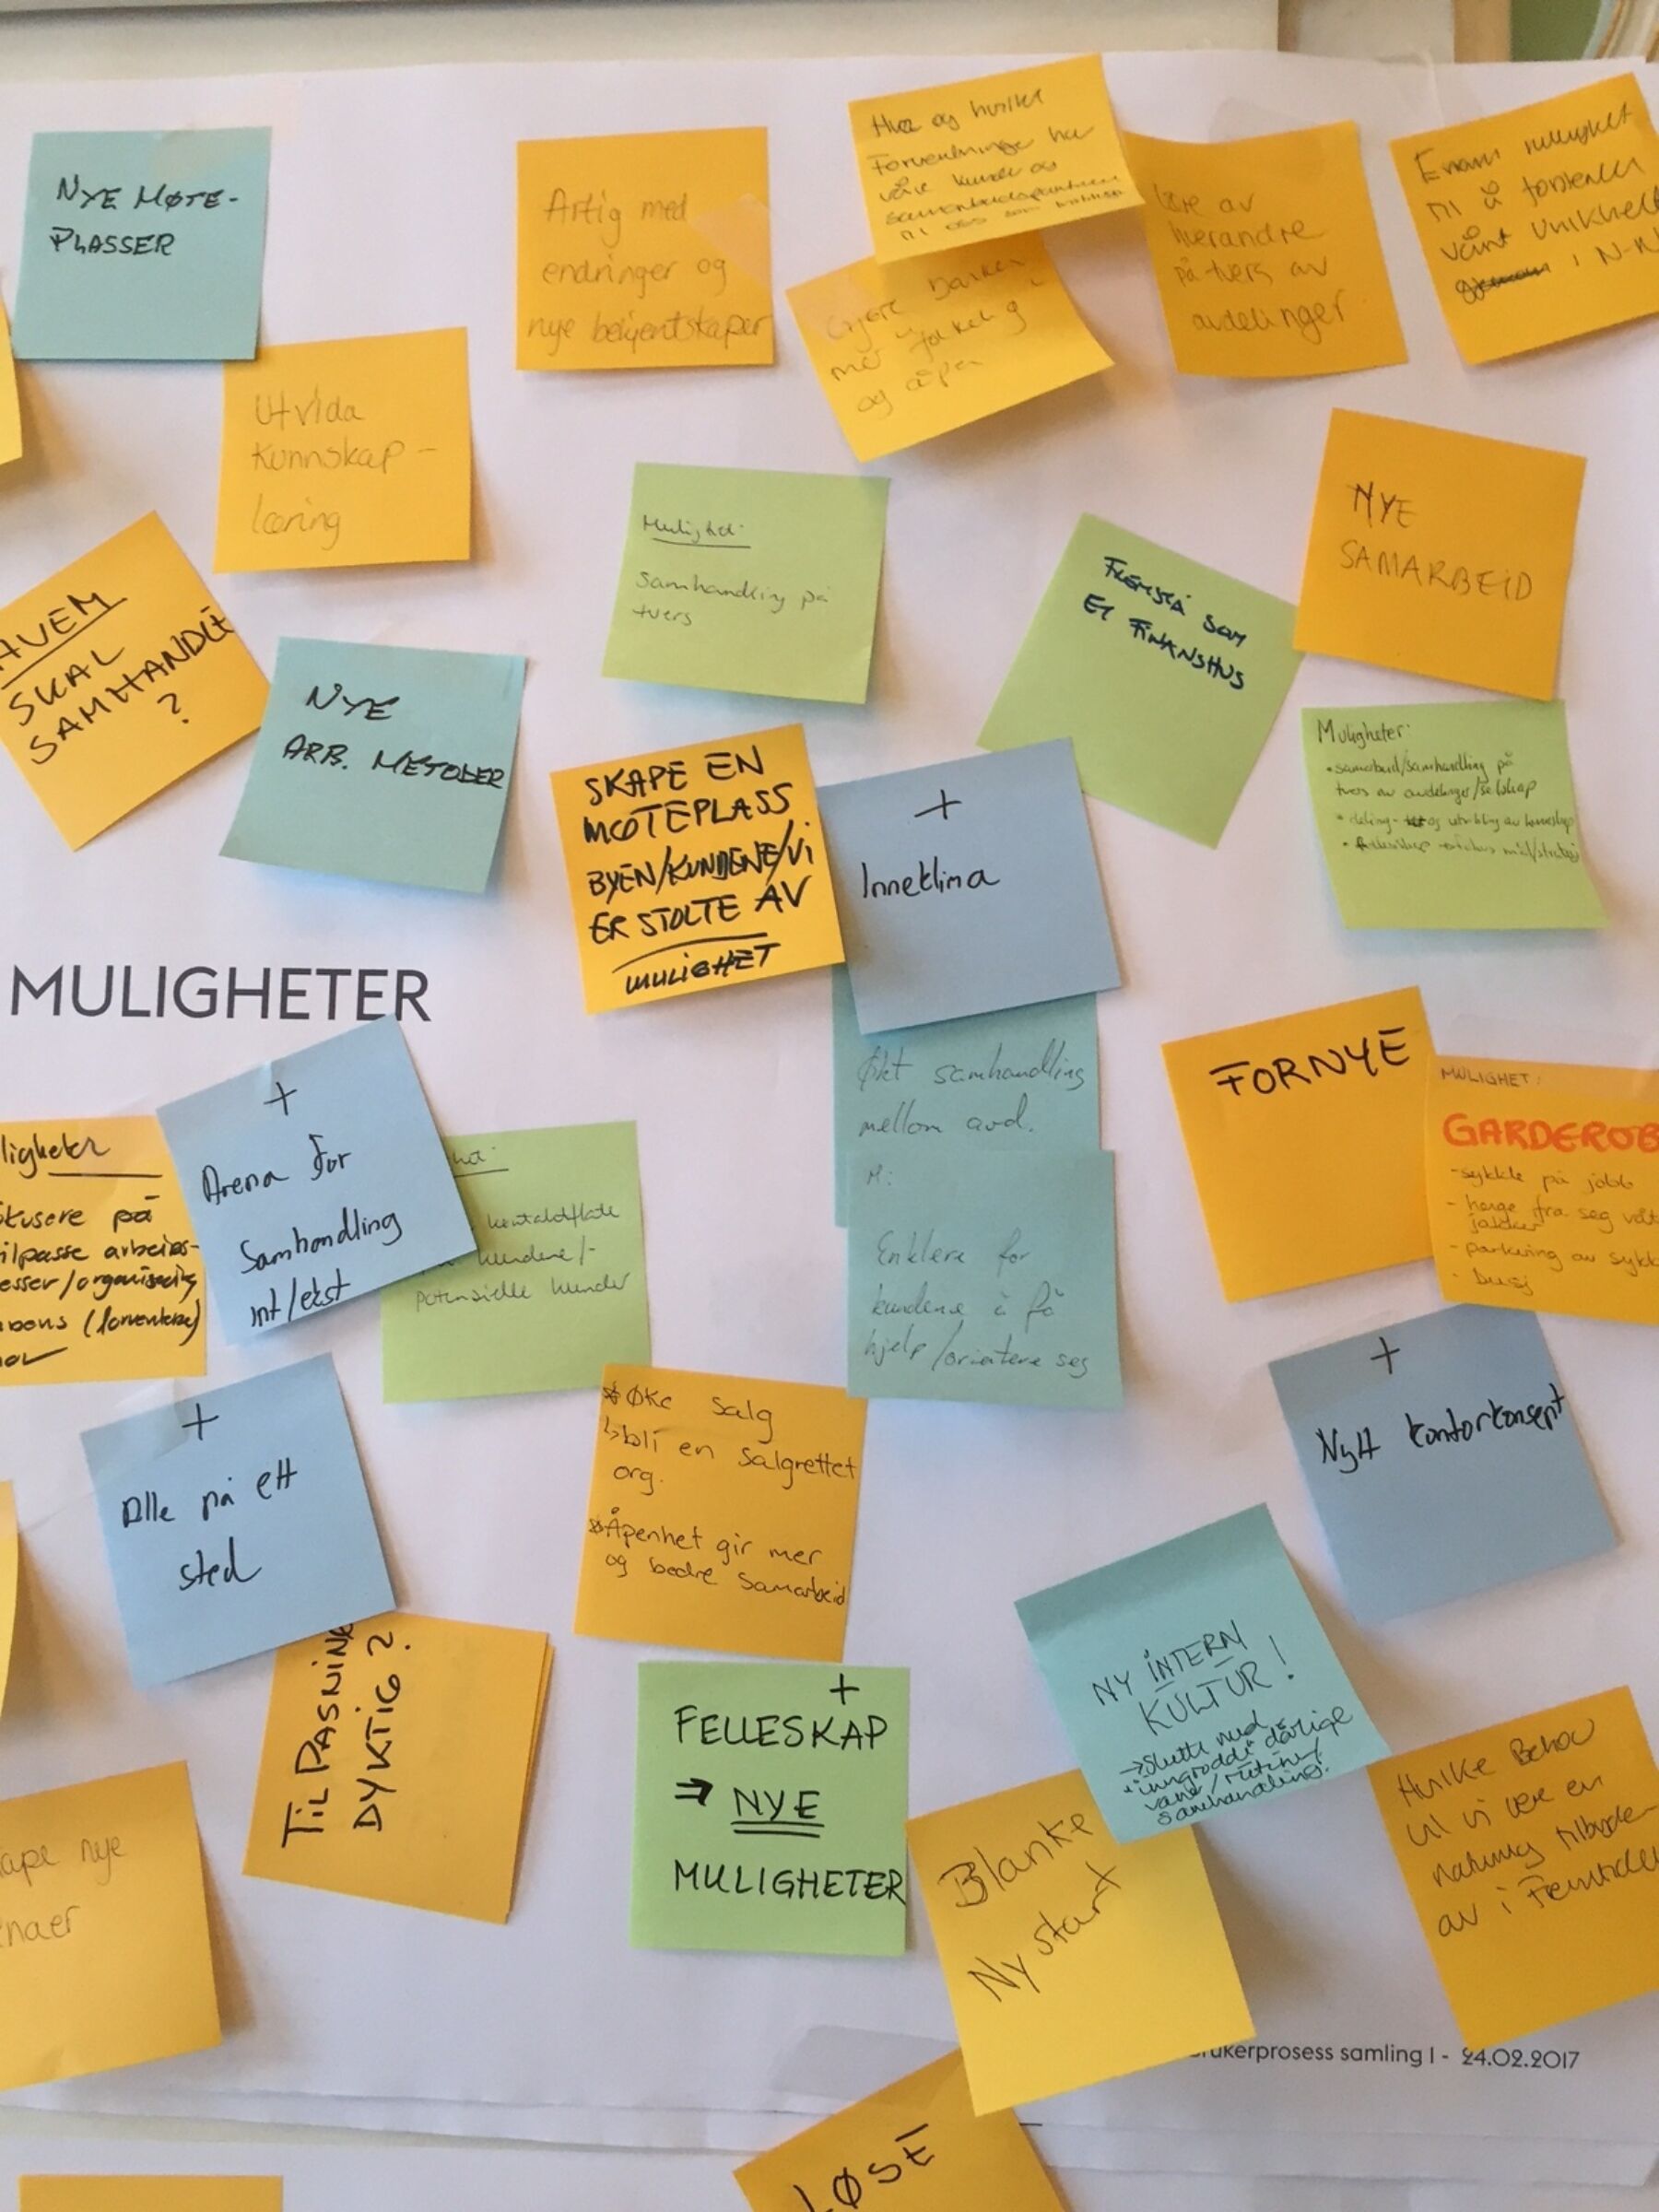 NYE MØTE-
PLASSER
Artig med
endringer og
nye bekjentskaper
Hva og hvilke
forventninger har
våre kunder og
samarbeidspartnere
til oss som
Gjøre banken
mer folkelig
og åpen
lære av
hverandre
på tvers av
avdelinger
Enorm mulighet
til å forsterke
vårt
i N-N
Utvida
kunnskap -
læring
Mulighet:
Samhandling på
tvers
FREMSTÅ SOM
ET FINANSHUS
NYE
SAMARBEID
HVEM
SKAL
SAMHANDLE
?
NYE
ARB. METODER
SKAPE EN
MØTEPLASS
BYEN/KUNDENE/VI
ER STOLTE AV
MULIGHET
+
Inneklima
Muligheter:
• samarbeid/samhandling på
tvers av avdelinger/selskap
• deling- og utvikling av kunnskap
mål/strategi
MULIGHETER
Økt samhandling
mellom avd.
M:
Enklere for
kundene å få
hjelp/orientere seg
FORNYE
MULIGHET:
GARDEROB
- sykkle på jobb
- henge fra seg våt
jakker
- parkering av sykk
ligheter
kusere på
ilpasse arbeids-
esser/organisering
+
Arena for
Samhandling
int/ekst
het:
kontaktflate
kundene/-
potensielle kunder
+
Alle på ett
sted
* Øke salg
↳ bli en salgrettet
org.
* Åpenhet gir mer
og bedre samarbeid
+
Nytt kontorkonsept
TILPASNIN
DYKTIG?
+
FELLESKAP
→ NYE
MULIGHETER
NY INTERN
KULTUR!
→ Slutte med
"inngrodde" dårlige
vaner/rutiner/
samhandling.
Blanke
Ny start
Hvilke Behov
vil vi være en
naturlig tilbyder
av i Fremtiden
ape nye
naer
rukerprosess samling I - 24.02.2017
LØSE